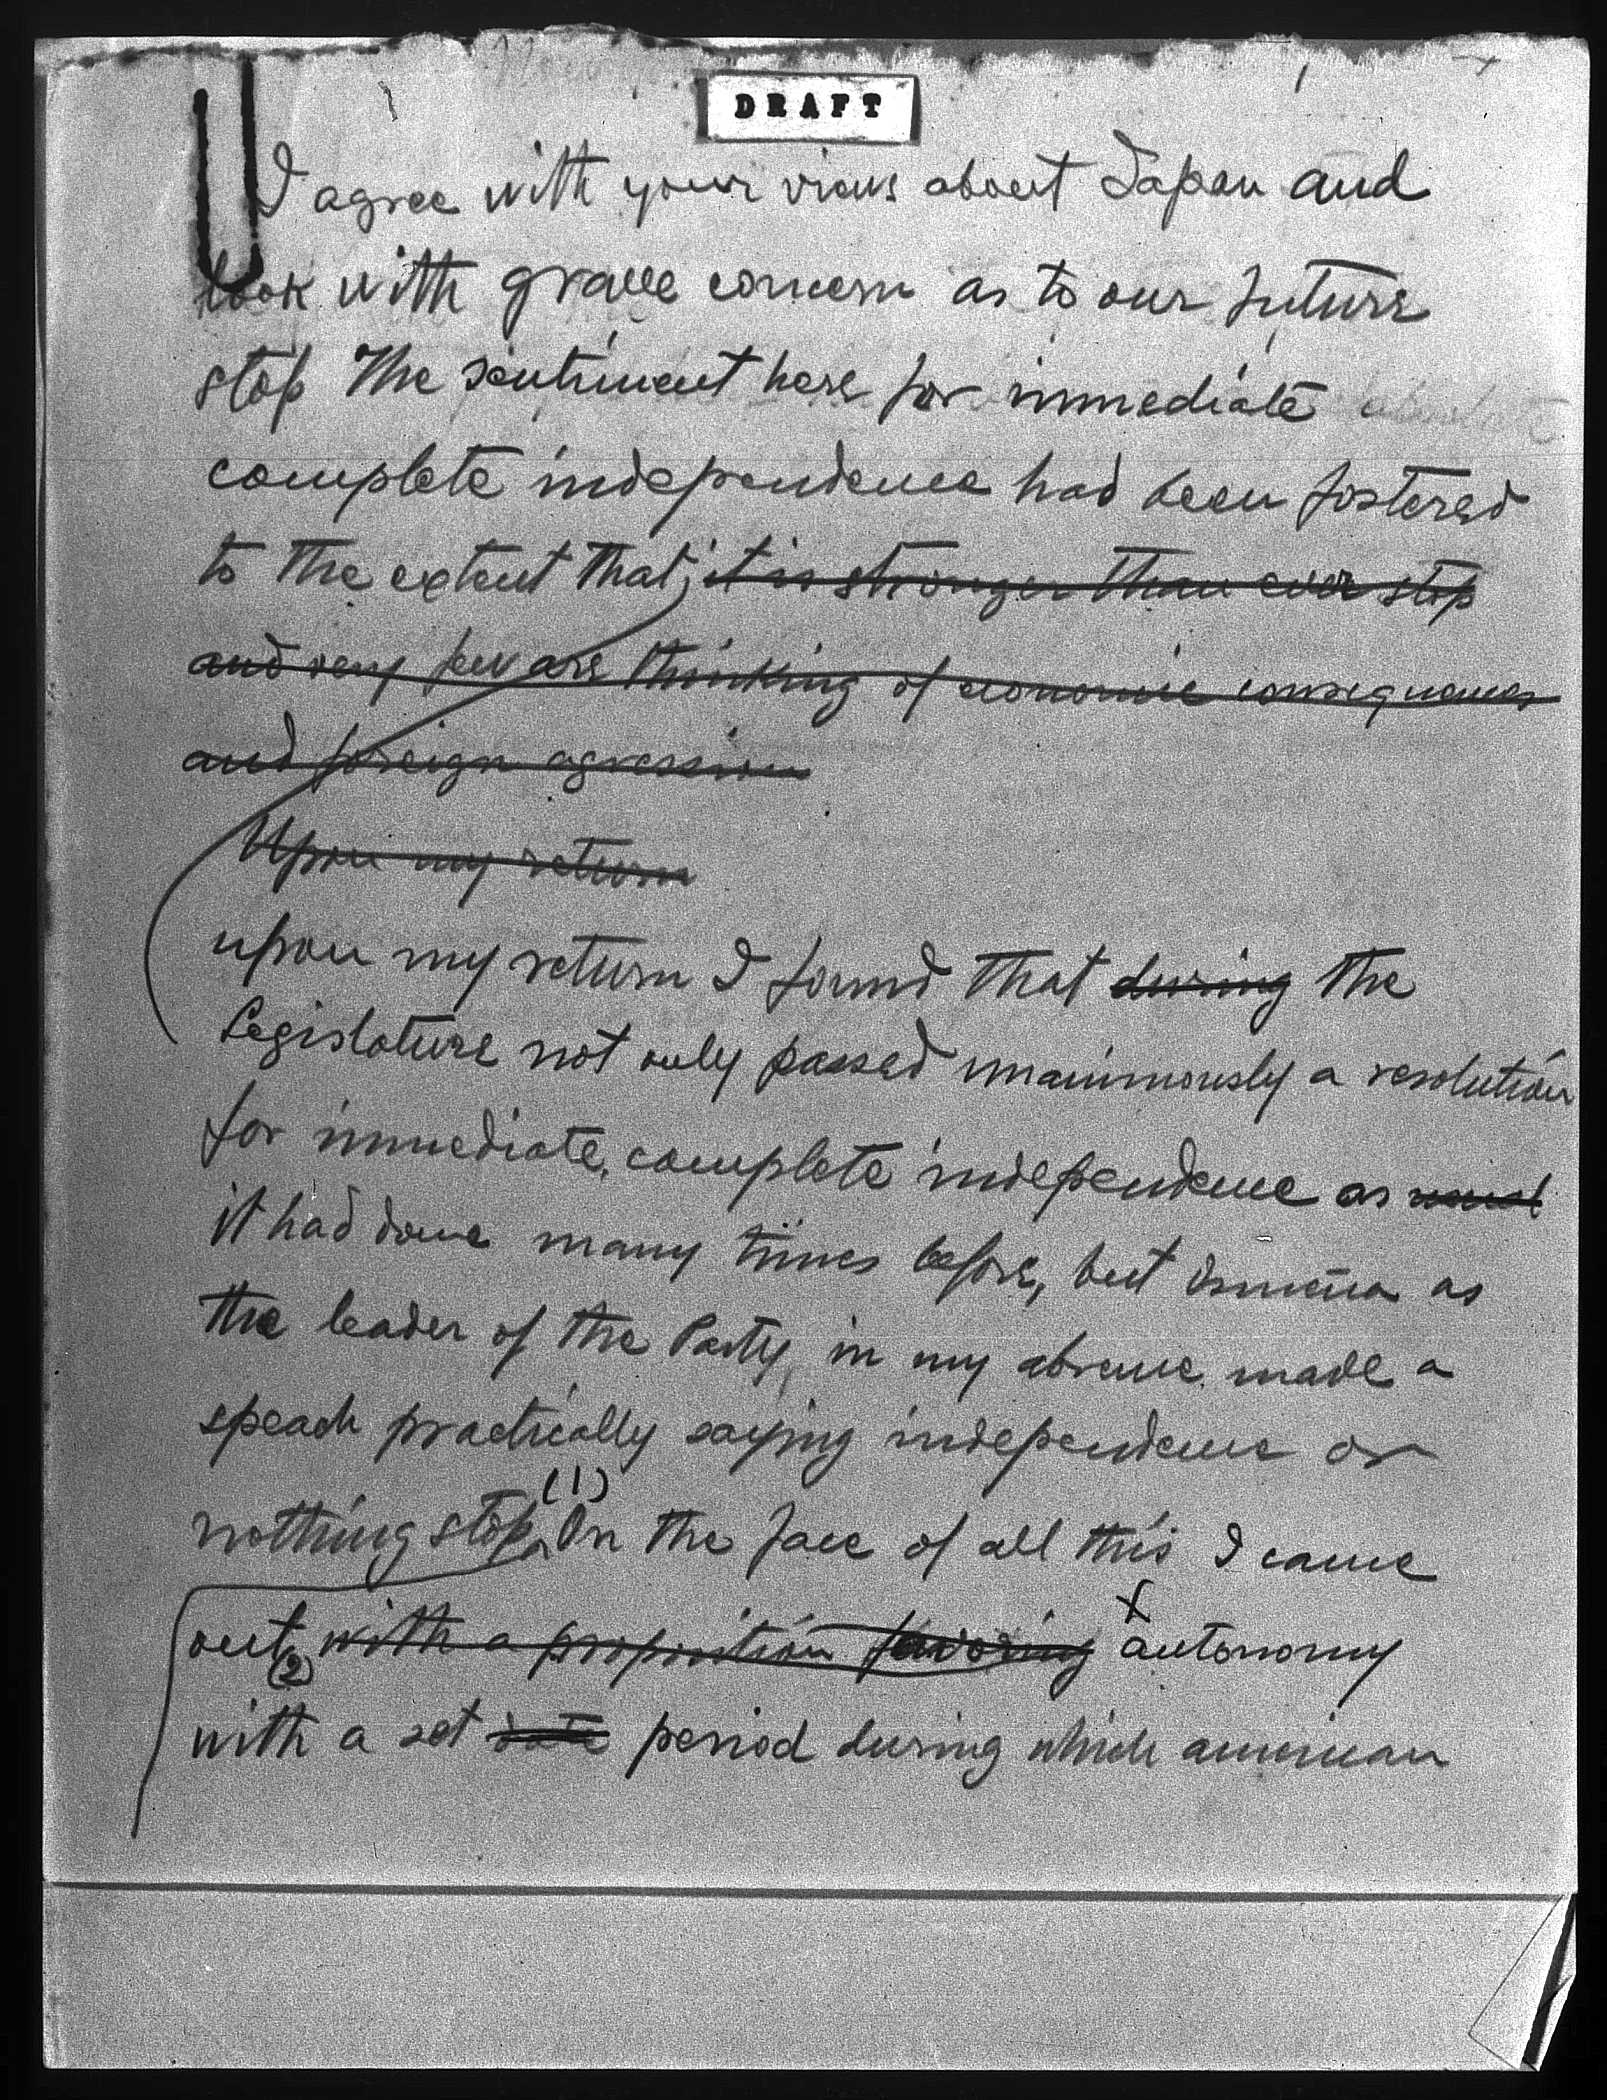 DRAFT
I agree with your views about Japan and
look with grave concern as to our future
stop The sentiment here for immediate absolute
complete independence had been fostered
to the extent that it is stronger than ever stop
and very few are thinking of economic consequences
and foreign agression
Upon my return
upon my return I found that during the
Legislature not only passed unanimously a resolution
for immediate, complete independence as
it had done many times before, but Osmeña as
the leader of the Party, in my absence, made a
speach practically saying independence or
nothing stop (1) On the face of all this I came
out (2) with a proposition favoring x autonomy
with a set date period during which american